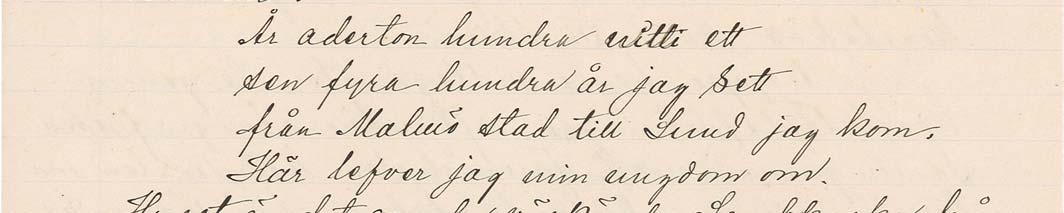 År aderton hundra nitti ett
sen fyra hundra år jag sett
från Malmö stad till Lund jag kom.
Här lefver jag min ungdom om.